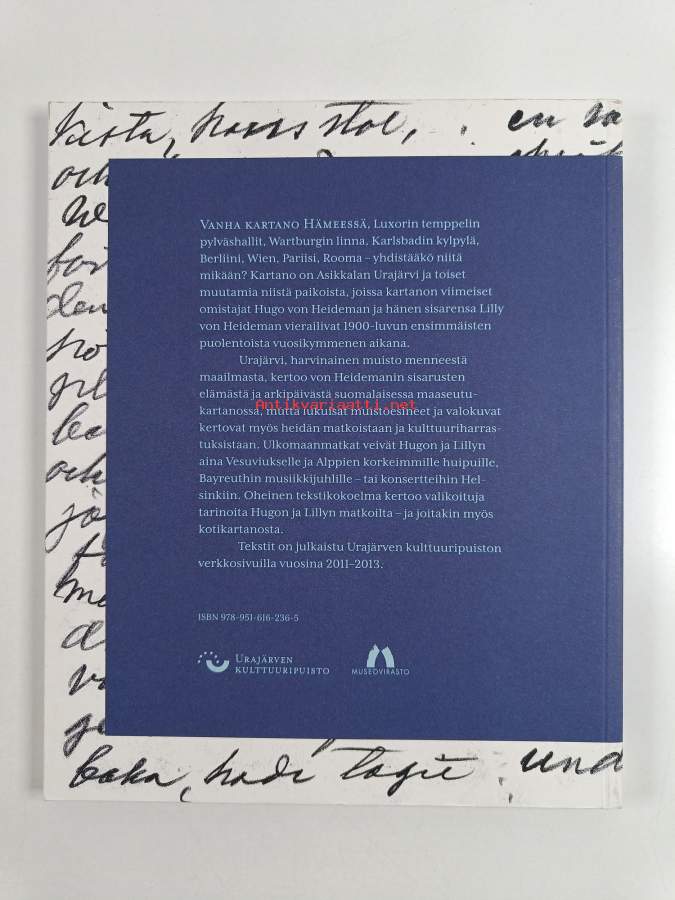 baka, hade tagit
VANHA KARTANO HÄMEESSÄ, Luxorin temppelin
pylväshallit, Wartburgin linna, Karlsbadin kylpylä,
Berliini, Wien, Pariisi, Rooma – yhdistääkö niitä
mikään? Kartano on Asikkalan Urajärvi ja toiset
muutamia niistä paikoista, joissa kartanon viimeiset
omistajat Hugo von Heideman ja hänen sisarensa Lilly
von Heideman vierailivat 1900-luvun ensimmäisten
puolentoista vuosikymmenen aikana.
Urajärvi, harvinainen muisto menneestä
maailmasta, kertoo von Heidemanin sisarusten
elämästä ja arkipäivästä suomalaisessa maaseutu-
kartanossa, mutta lukuisat muistoesineet ja valokuvat
Antikvariaatti.net
kertovat myös heidän matkoistaan ja kulttuuriharras-
tuksistaan. Ulkomaanmatkat veivät Hugon ja Lillyn
aina Vesuviukselle ja Alppien korkeimmille huipuille,
Bayreuthin musiikkijuhlille – tai konsertteihin Hel-
sinkiin. Oheinen tekstikokoelma kertoo valikoituja
tarinoita Hugon ja Lillyn matkoilta – ja joitakin myös
kotikartanosta.
Tekstit on julkaistu Urajärven kulttuuripuiston
verkkosivuilla vuosina 2011–2013.
ISBN 978-951-616-236-5
URAJÄRVEN
KULTTUURIPUISTO
MUSEOVIRASTO